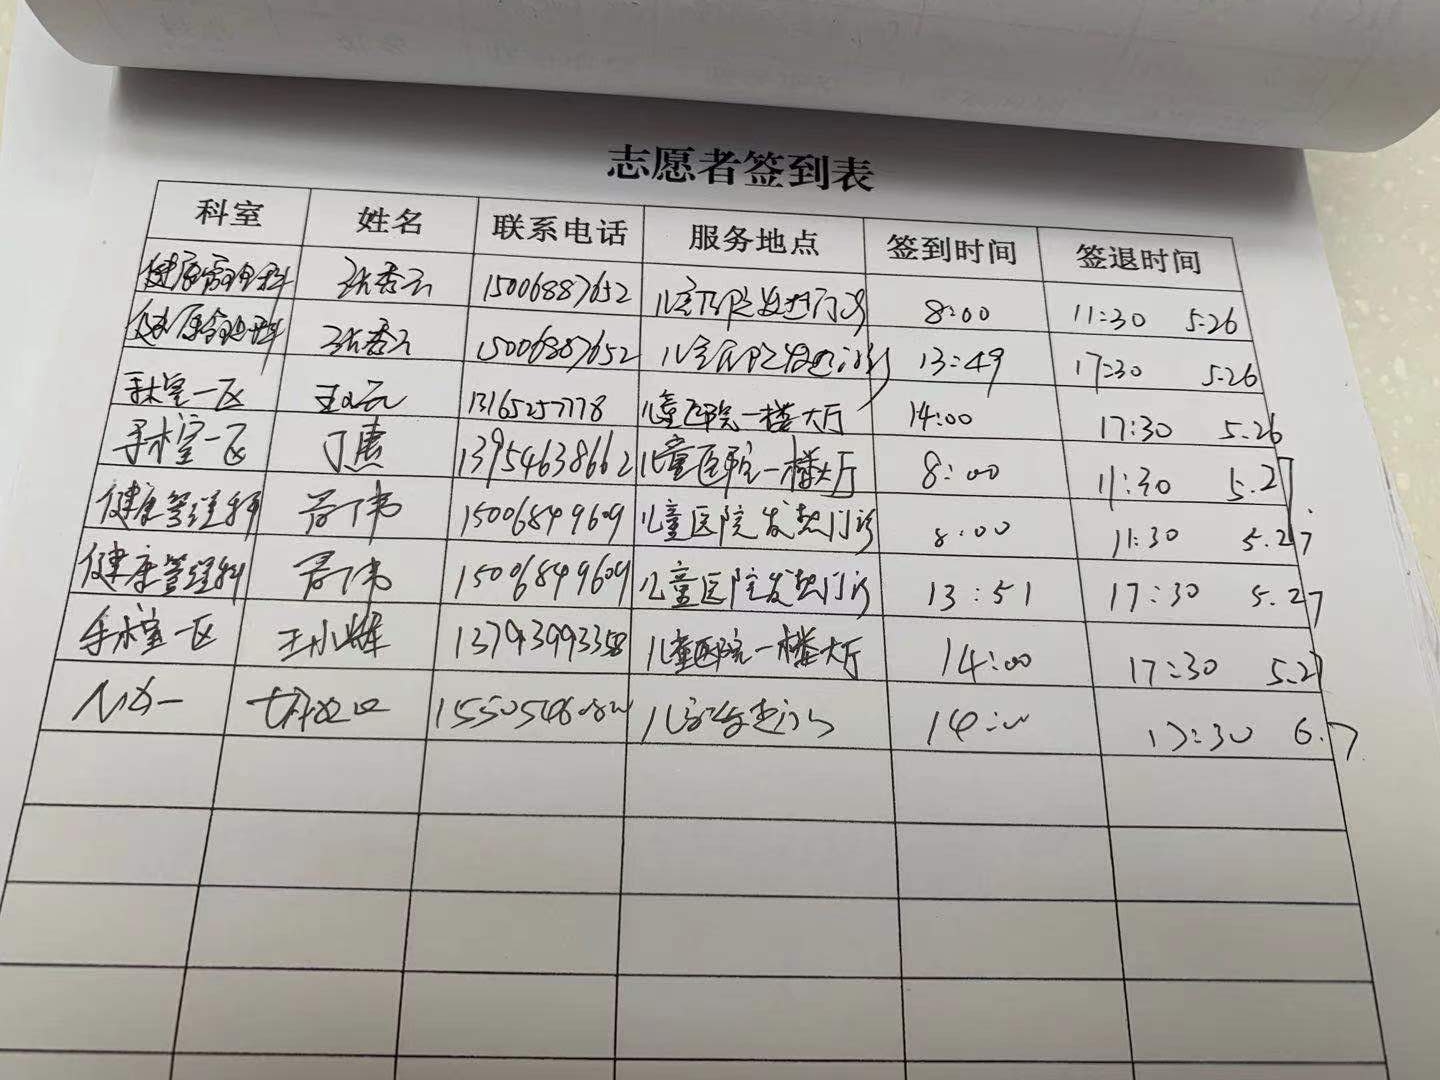 志愿者签到表
科室 姓名 联系电话 服务地点 签到时间 签退时间
健康管理科 张秀云 15006887652 儿童医院发热门诊 8:00 11:30 5.26
健康管理科 张秀云 15006887652 儿童医院发热门诊 13:49 17:30 5.26
手术室一区 13165257778 儿童医院一楼大厅 14:00 17:30 5.26
手术室一区 丁惠 13954638662 儿童医院一楼大厅 8:00 11:30 5.27
健康管理科 15006849609 儿童医院发热门诊 8:00 11:30 5.27
健康管理科 15006849609 儿童医院发热门诊 13:51 17:30 5.27
手术室一区 王小辉 13793993358 儿童医院一楼大厅 14:00 17:30 5.27
14:00 17:30 6.7